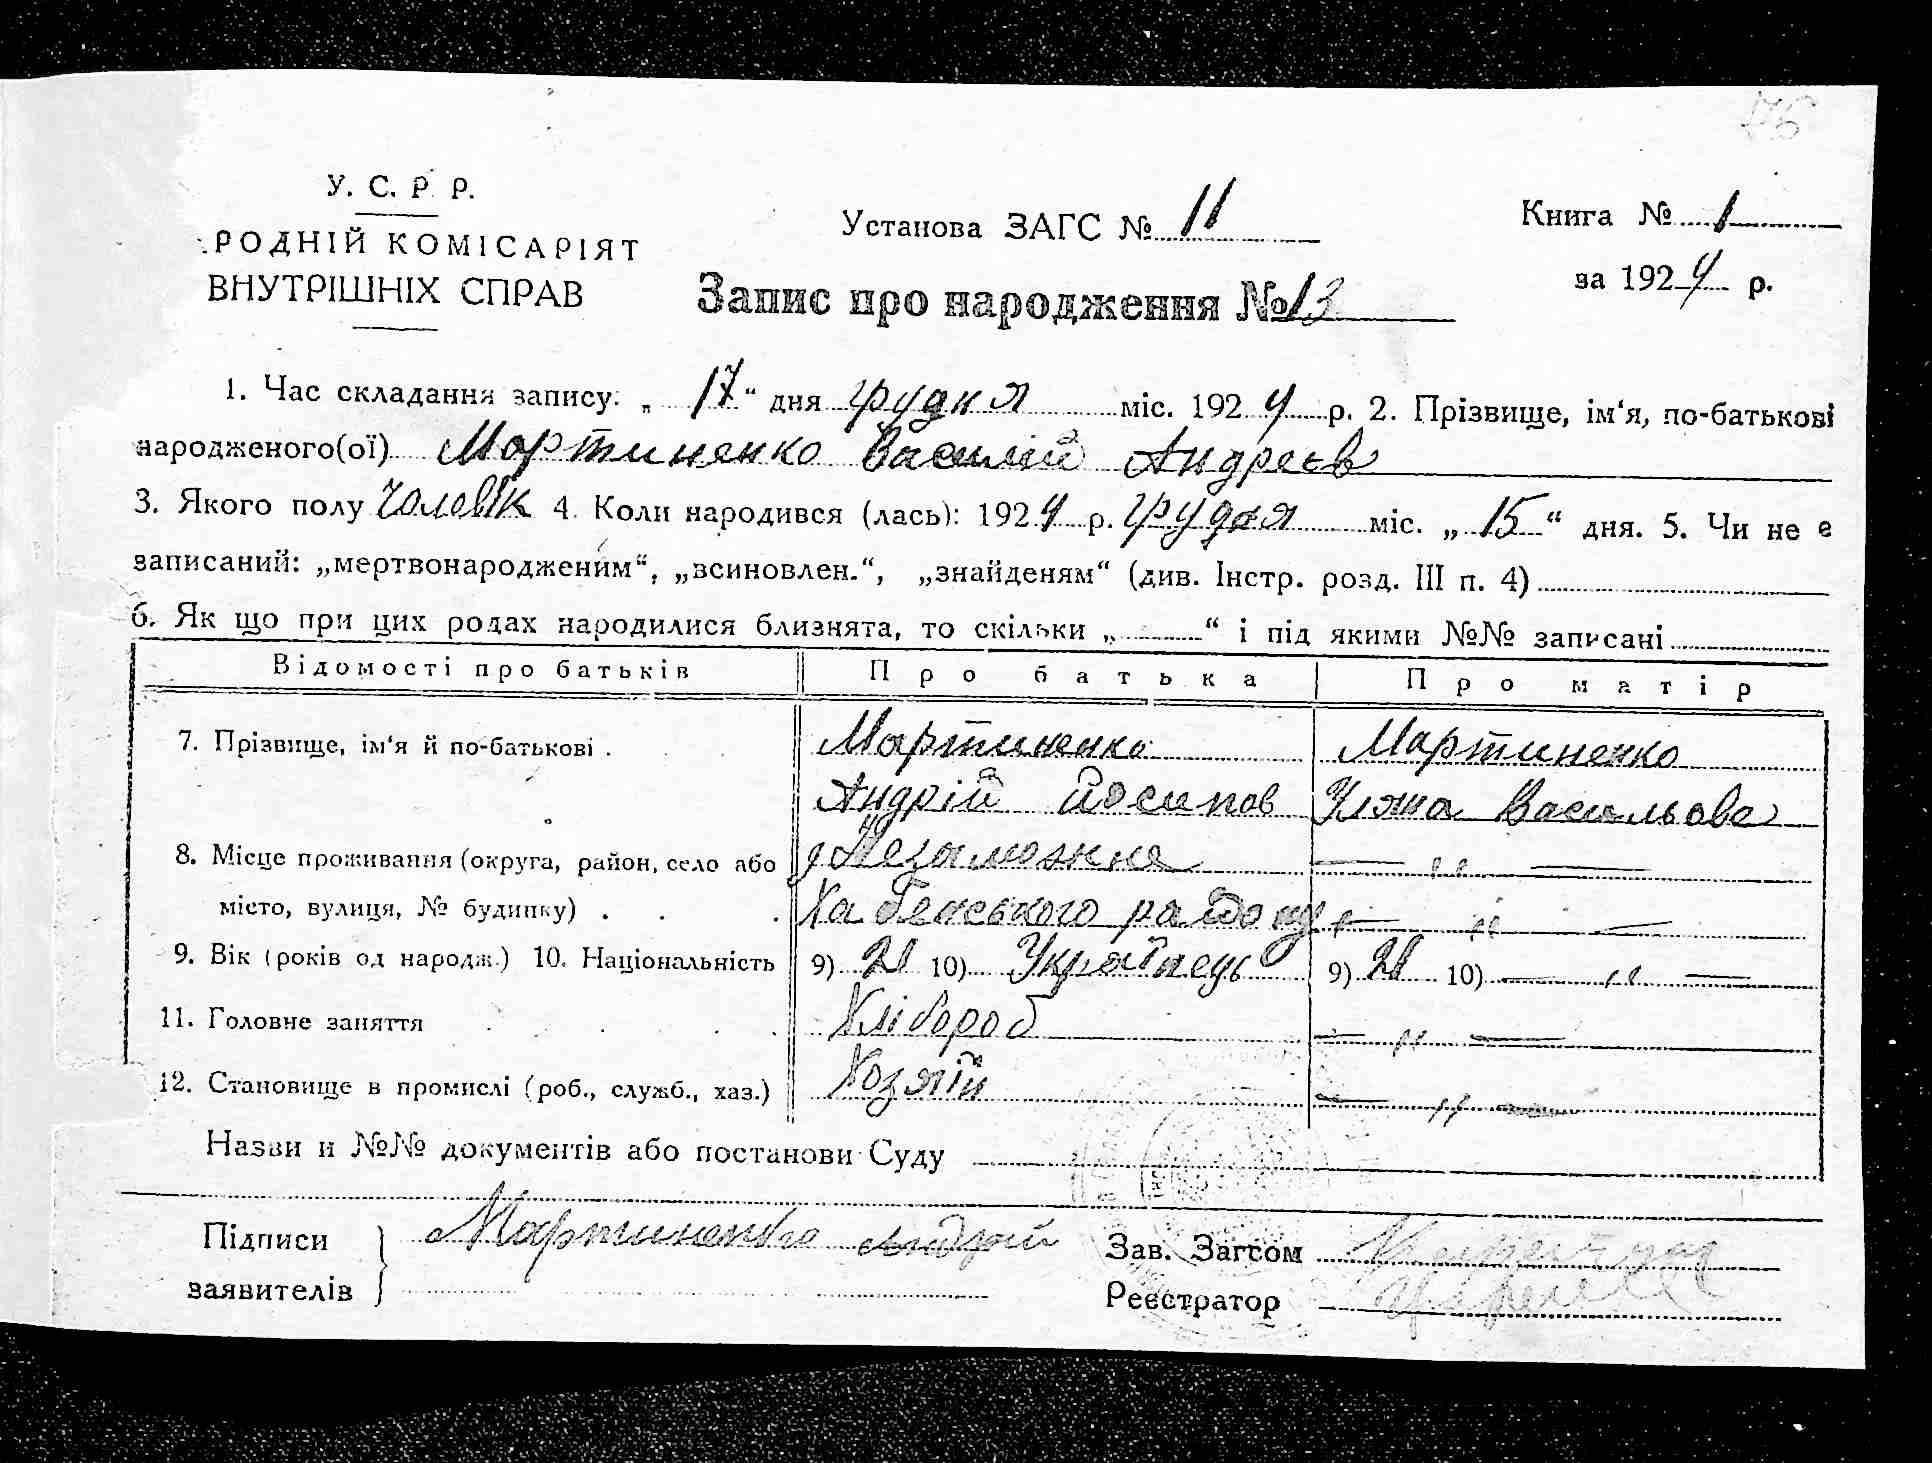 76
У. С. Р. Р.
РОДНІЙ КОМІСАРІЯТ
ВНУТРІШНІХ СПРАВ
Установа ЗАГС № 11
Книга № 1
за 1924 р.
Запис про народження № 13
1. Час складання запису: „ 17 “ дня грудня міс. 1924 р. 2. Прізвище, ім‘я, по-батькові
народженого(ої) Мартиненко Василій Андреєв
3. Якого полу чоловік 4. Коли народився (лась): 1924 р. грудня міс. „ 15 “ дня. 5. Чи не є
записаний: „мертвонародженим“, „всиновлен.“, „знайденям“ (див. Інстр. розд. III п. 4)
6. Як що при цих родах народилися близнята, то скільки „ “ і під якими №№ записані
Відомості про батьків Про батька Про матір
7. Прізвище, ім‘я й по-батькові . Мартиненко Мартиненко
Андрій Йосипов Уляна Васильова
8. Місце проживання (округа, район, село або Незаможня — „ —
місто, вулиця, № будинку) . . . Хабенського району — „ —
9. Вік (років од народж.) 10. Національність 9) 21 10) Українець 9) 21 10) — „ —
11. Головне заняття . . . Хлібороб — „ —
12. Становище в промислі (роб., служб., хаз.) Хозяїн — „ —
Назви и №№ документів або постанови Суду
Підписи заявителів } Мартиненко Андрій
Зав. Загсом
Реєстратор